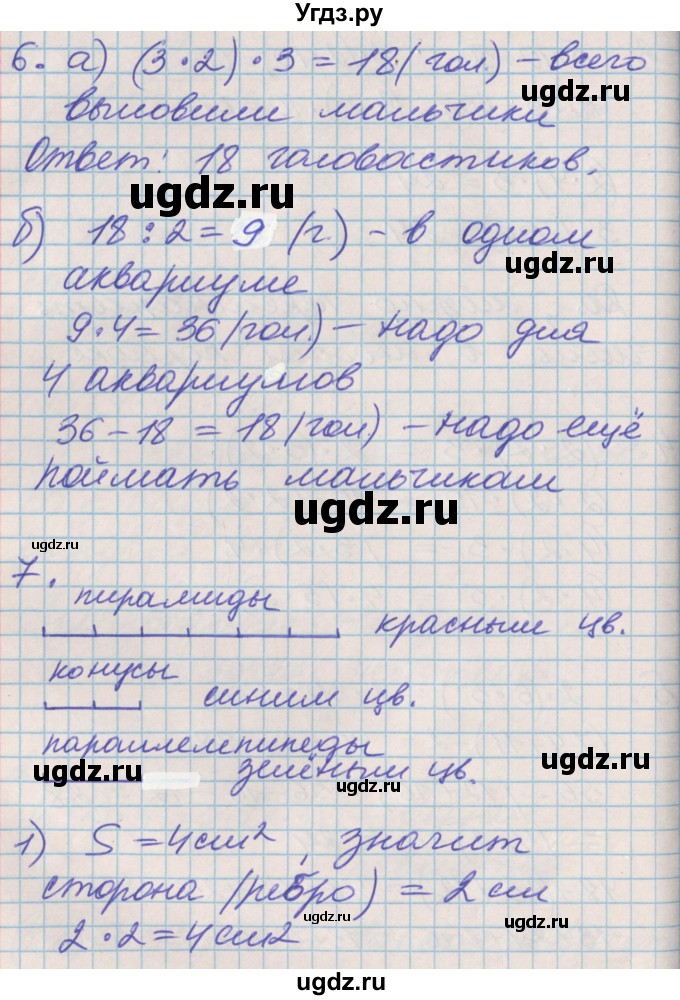 Угдз.ру
6. а) (3·2)·3=18(гол.) – всего
выловили мальчики
Ответ: 18 головастиков.
б) 18:2=9 (г.) – в одном
аквариуме
9·4=36(гол.) – надо для
4 аквариумов
36-18=18(гол) – надо ещё
поймать мальчикам
7.
пирамиды
красным цв.
конусы
синим цв.
параллелепипеды
зелёным цв.
1) S=4см², значит
сторона (ребро) = 2 см
2·2=4см²
ugdz.ru
ugdz.ru
ugdz.ru
ugdz.ru
ugdz.ru
ugdz.ru
ugdz.ru
ugdz.ru
ugdz.ru
ugdz.ru
ugdz.ru
ugdz.ru
ugdz.ru